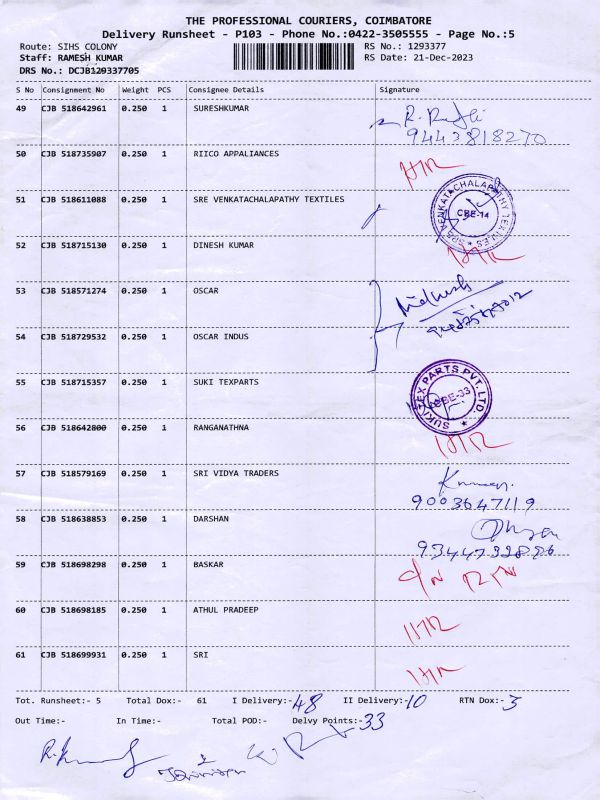 THE PROFESSIONAL COURIERS, COIMBATORE
Delivery Runsheet - P103 - Phone No.:0422-3505555 - Page No.:5
Route: SIHS COLONY RS No.: 1293377
Staff: RAMESH KUMAR RS Date: 21-Dec-2023
DRS No.: DCJB129337705
S No Consignment No Weight PCS Consignee Details Signature
49 CJB 518642961 0.250 1 SURESHKUMAR
9443818270
50 CJB 518735907 0.250 1 RIICO APPALIANCES
51 CJB 518611088 0.250 1 SRE VENKATACHALAPATHY TEXTILES
SRE VENKATACHALAPATHY TEXTILES
CBE-14
52 CJB 518715130 0.250 1 DINESH KUMAR
53 CJB 518571274 0.250 1 OSCAR
54 CJB 518729532 0.250 1 OSCAR INDUS
55 CJB 518715357 0.250 1 SUKI TEXPARTS
SUKI TEX PARTS PVT. LTD.
CBE-33
56 CJB 518642800 0.250 1 RANGANATHNA
57 CJB 518579169 0.250 1 SRI VIDYA TRADERS
9003647119
58 CJB 518638853 0.250 1 DARSHAN
59 CJB 518698298 0.250 1 BASKAR
60 CJB 518698185 0.250 1 ATHUL PRADEEP
61 CJB 518699931 0.250 1 SRI
Tot. Runsheet:- 5 Total Dox:- 61 I Delivery:-48 II Delivery:-10 RTN Dox:-3
Out Time:- In Time:- Total POD:- Delvy Points:-33